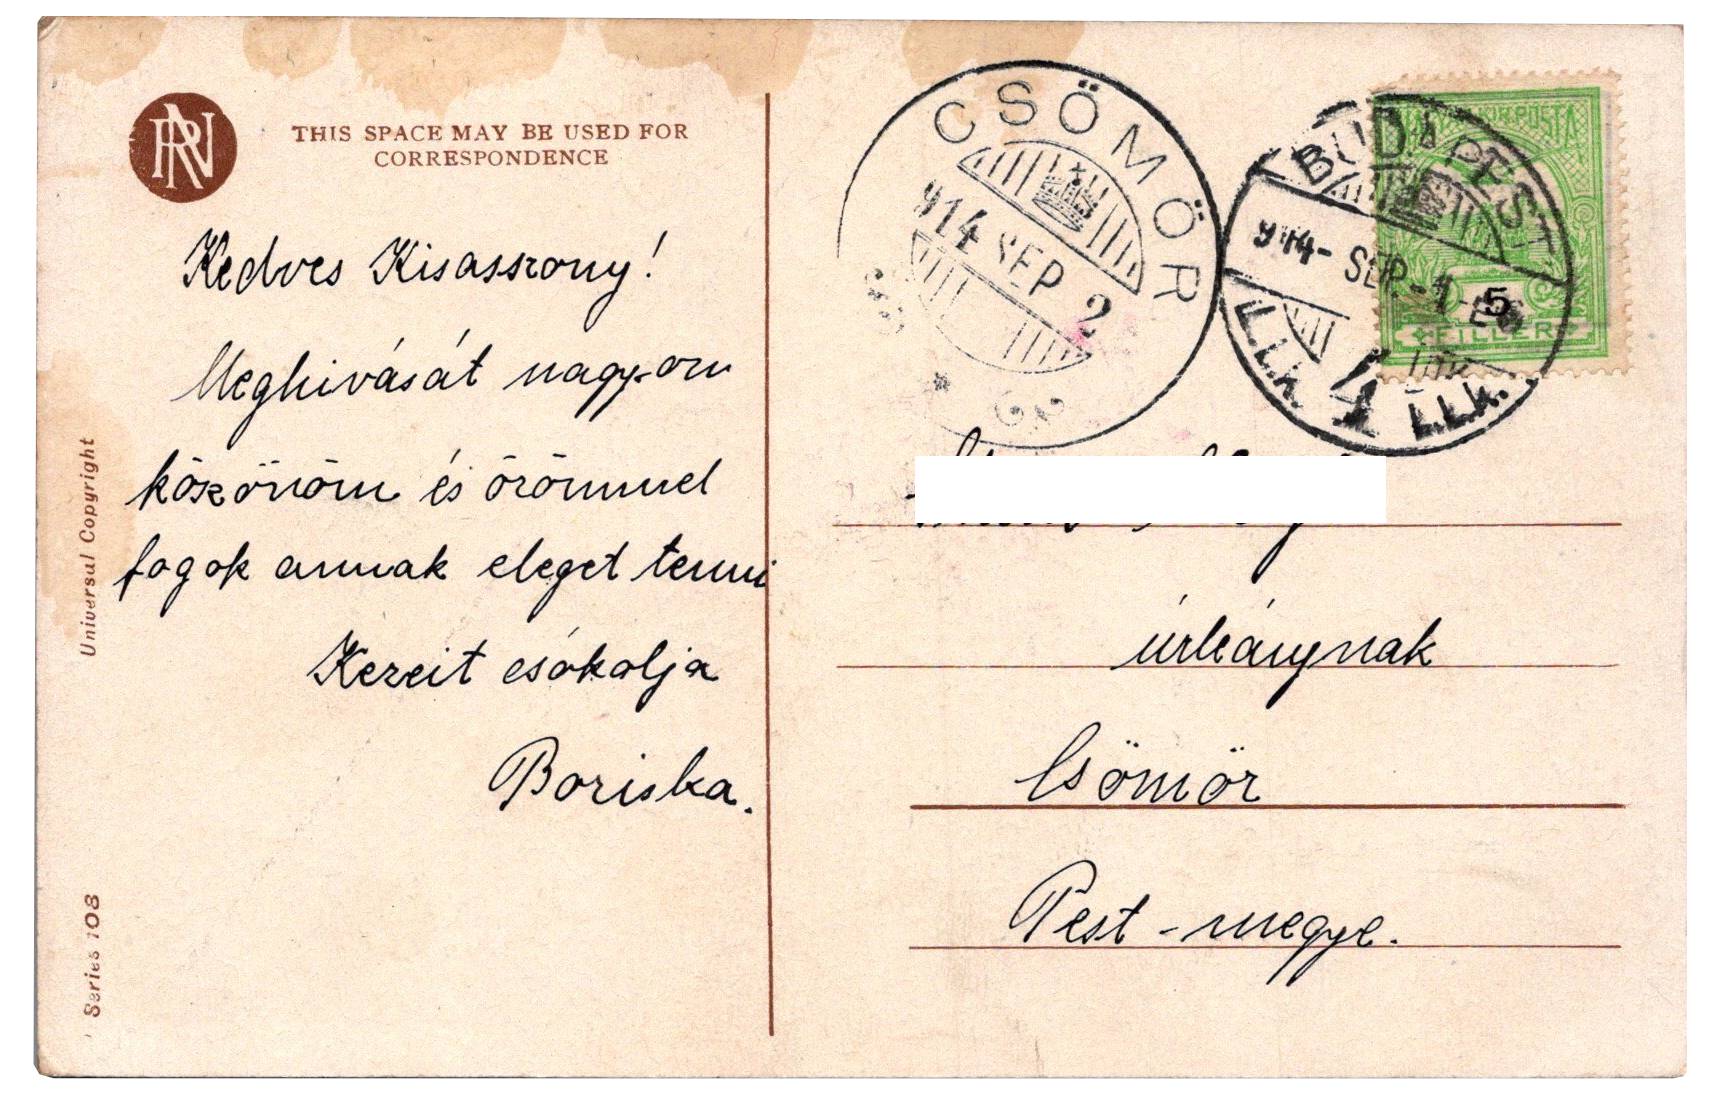 RN
THIS SPACE MAY BE USED FOR
CORRESPONDENCE
Kedves Kisasszony!
Meghivását nagyon
köszönöm és örömmel
fogok annak eleget tenni
Kezeit csókolja
Boriska.
Universal Copyright
Series 108
CSÖMÖR
914 SEP 2
BUDAPEST
914-SEP.-1
4
5
FILLÉR
úrleánynak
Csömör
Pest-megye.